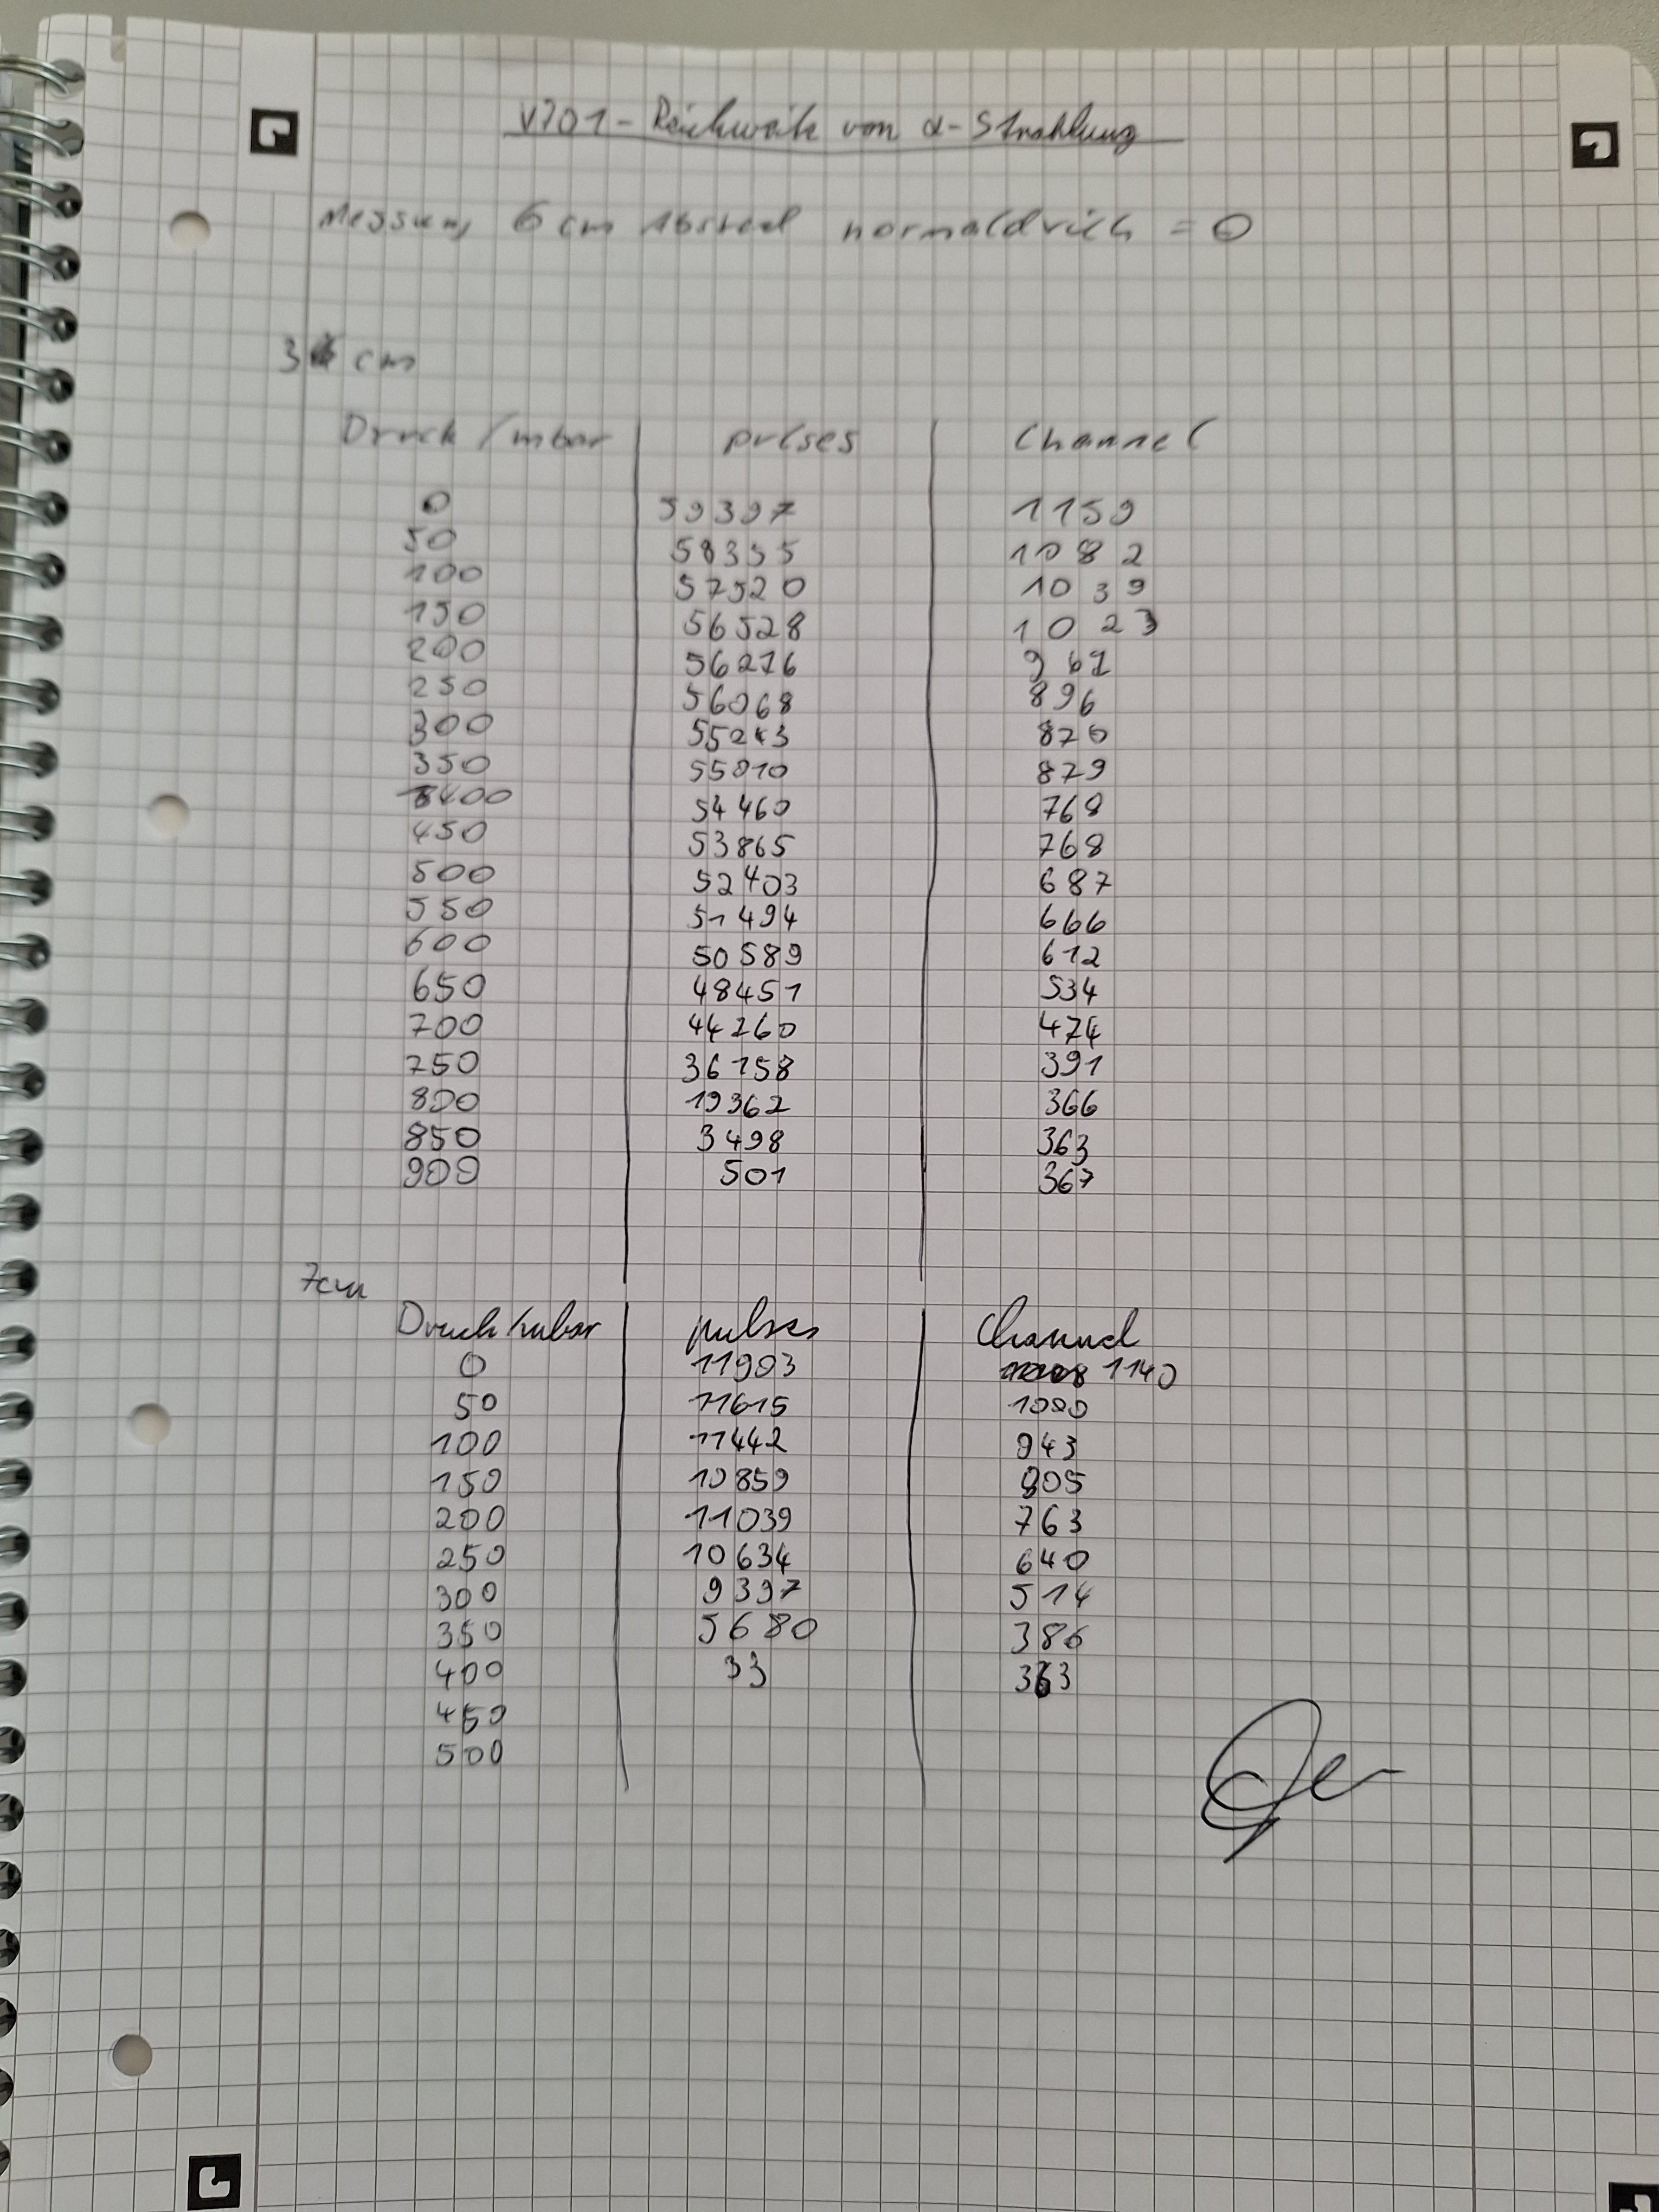 V701 - Reichweite von α-Strahlung
Messung 6 cm Abstand normaldruck = 0
3 cm
Druck / mbar pulses Channel
0 59397 1159
50 58355 1082
100 57520 1039
150 56528 1023
200 56276 961
250 56068 896
300 55243 870
350 55010 879
400 54460 768
450 53865 768
500 52403 687
550 51494 666
600 50589 612
650 48451 534
700 44260 474
750 36158 391
800 19362 366
850 3498 363
900 501 367
7cm
Druck/mbar pulses Channel
0 11903 1140
50 11615 1000
100 11442 943
150 10859 805
200 11039 763
250 10634 640
300 9397 514
350 5680 386
400 33 363
450
500